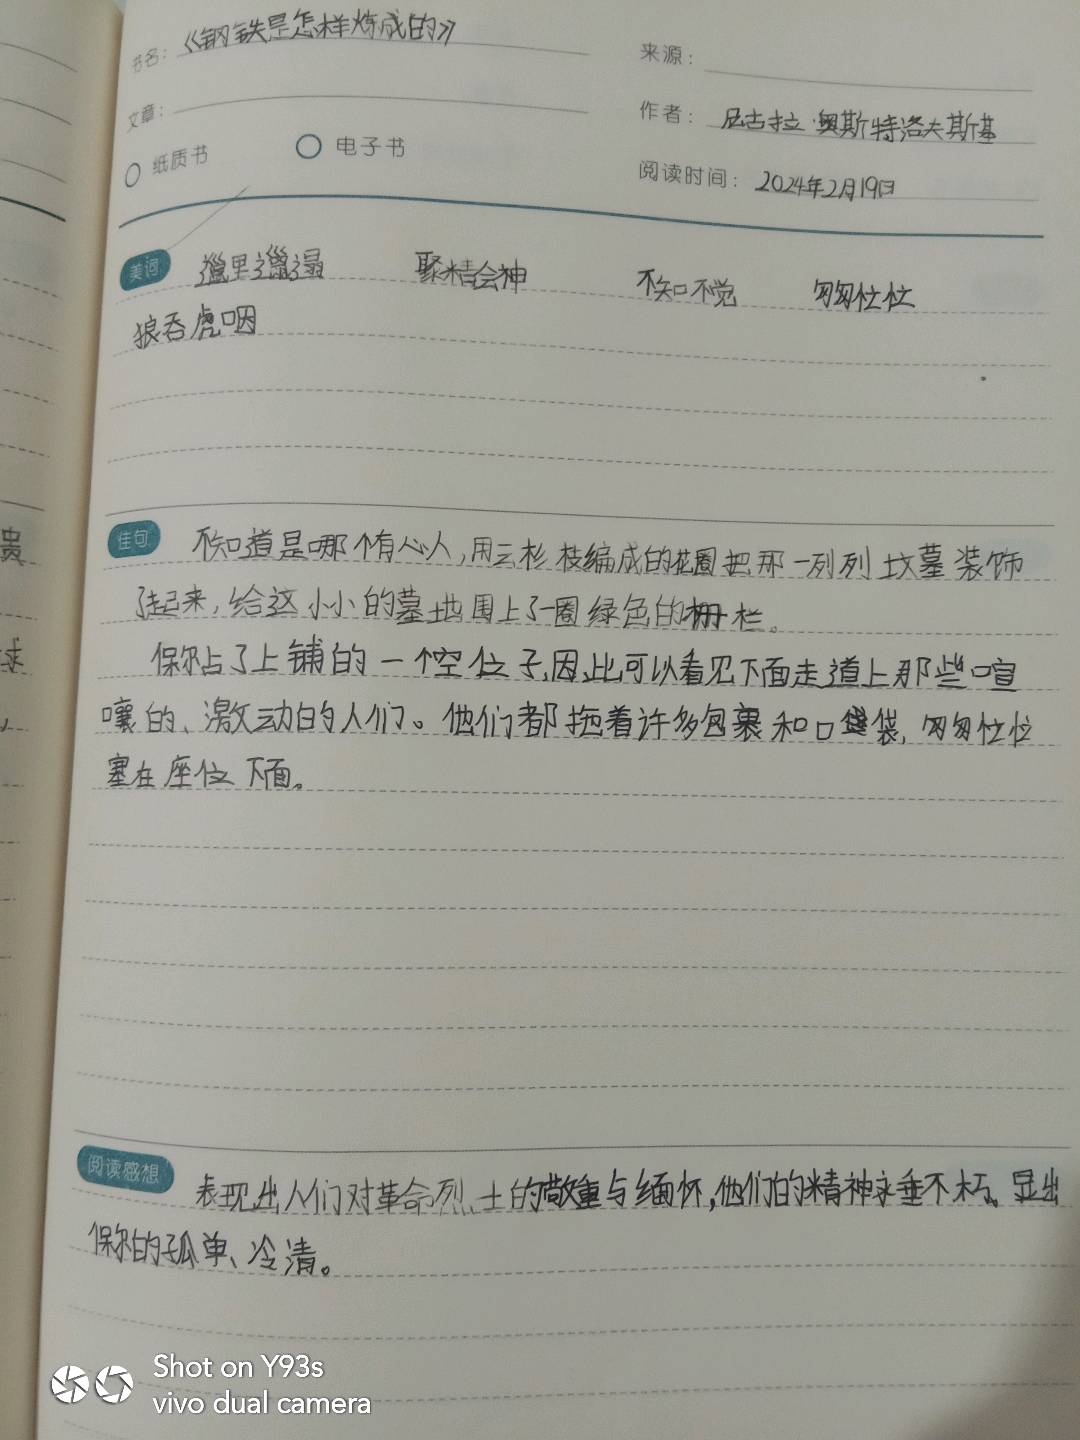 书名：《钢铁是怎样炼成的》
来源：
文章：
作者：尼古拉·奥斯特洛夫斯基
纸质书 电子书
阅读时间：2024年2月19日
美词 邋里邋遢 聚精会神 不知不觉 匆匆忙忙
狼吞虎咽
佳句 不知道是哪个有心人，用云杉枝编成的花圈把那一列列坟墓装饰
了起来，给这小小的墓地围上了一圈绿色的栅栏。
保尔占了上铺的一个空位子，因此可以看见下面走道上那些喧
嚷的、激动的人们。他们都拖着许多包裹和口袋，匆匆忙忙
塞在座位下面。
阅读感想 表现出人们对革命烈士的敬重与缅怀，他们的精神永垂不朽。显出
保尔的孤单、冷清。
贵
球
Shot on Y93s
vivo dual camera